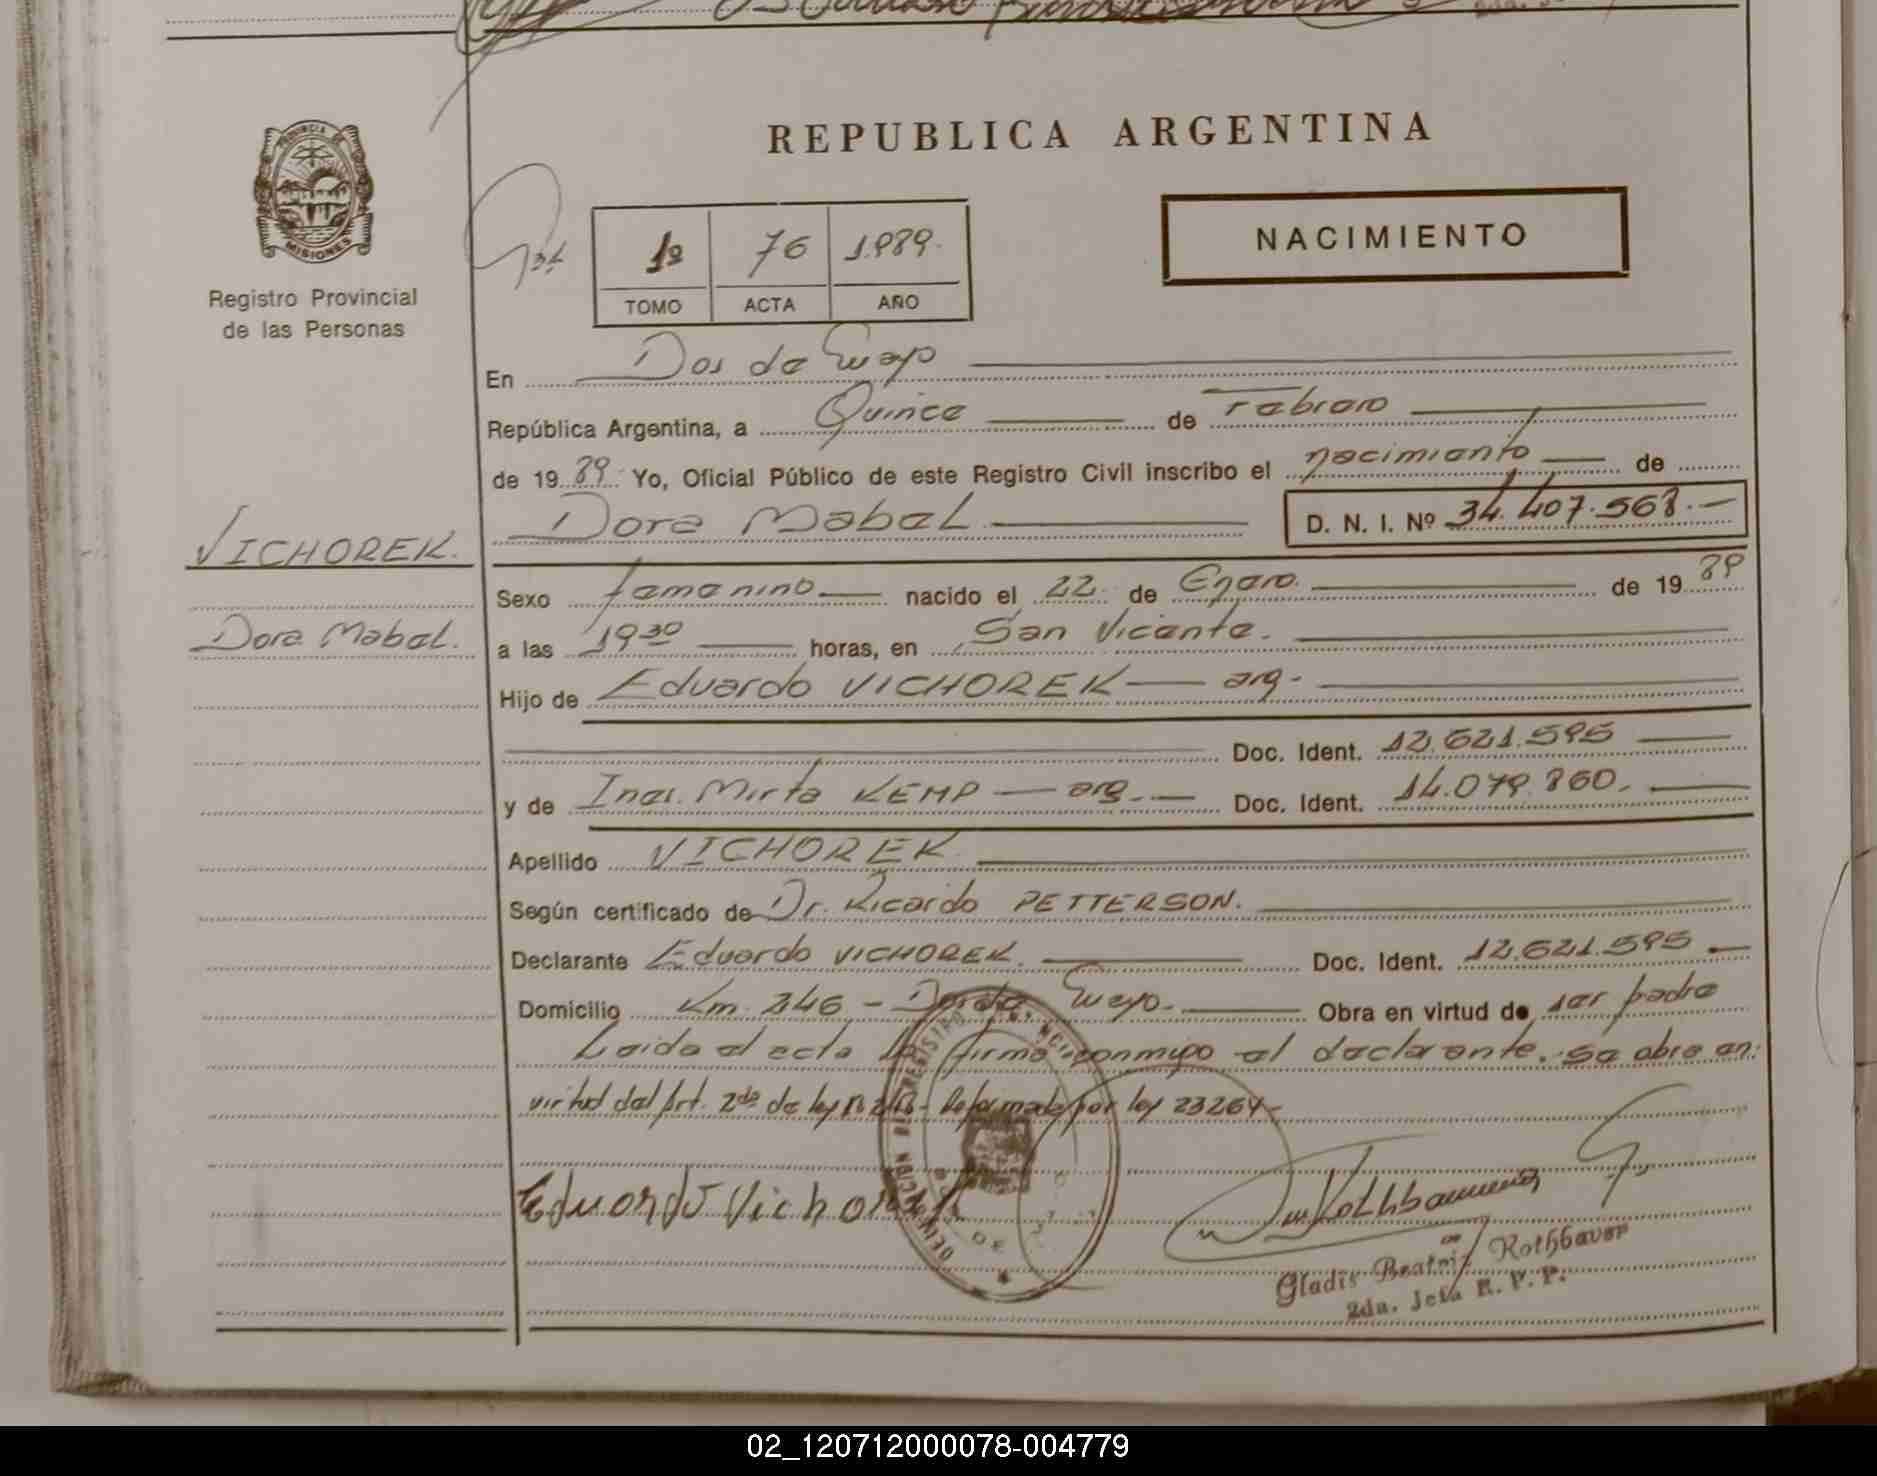 REPUBLICA ARGENTINA
PROVINCIA DE
MISIONES
Registro Provincial
de las Personas
1º 76 1.989.
TOMO ACTA AÑO
NACIMIENTO
En Dos de Mayo
República Argentina, a Quince de Febrero
de 19 89 Yo, Oficial Público de este Registro Civil inscribo el nacimiento de
Dora Mabel D. N. I. Nº 34.407.568.-
VICHOREK.
Sexo femenino nacido el 22 de Enero. de 19 89
Dora Mabel.
a las 19 30 horas, en San Vicente.
Hijo de Eduardo VICHOREK arg-
Doc. Ident. 12.621.595
y de Ines. Mirta KEMP arg. Doc. Ident. 14.079.860.
Apellido VICHOREK
Según certificado de Dr. Ricardo PETTERSON.
Declarante Eduardo VICHOREK. Doc. Ident. 12.621.595
Domicilio Km. 246 - Dos de Mayo. Obra en virtud de ser padre
Leida el acta la firma conmigo el declarante. se abre en
virtud del Art. 2do de ley Reformada por ley 23264-
Eduardo Vichorek
Gladis Beatriz Rothbauer
2da. Jefa R. P. P.
02_120712000078-004779